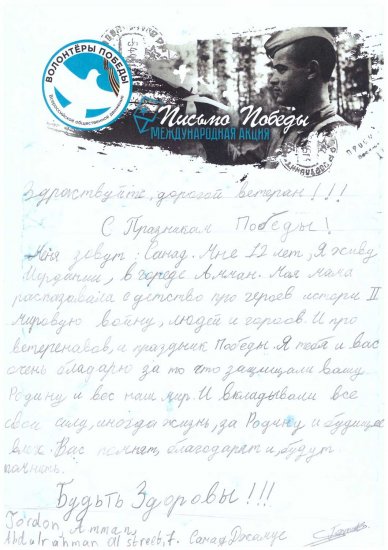 ВОЛОНТЁРЫ ПОБЕДЫ
Письмо Победы
МЕЖДУНАРОДНАЯ АКЦИЯ
Здраствуйте, дорогой ветеран!!!
С Празникам Победы!
Меня зовут: Санад. Мне 12 лет, Я живу
Иордании, в городе Амман. Моя мама
расказавала с детство про героев истори II
мировую войну, людей и героев. И про
ветеренавов, а праздник Победы. Я тебя и вас
очень бладарю за то что защищали вашу
Родину и вес наш мир. И вкладывали все
свои силу, иногда жизнь, за Родину и будищее
всех. Вас помнят, благодарят и, будут
помнить.
Будьть Здоровы!!!
Jordan Amman,
Abdulrahman street, 7. Санад